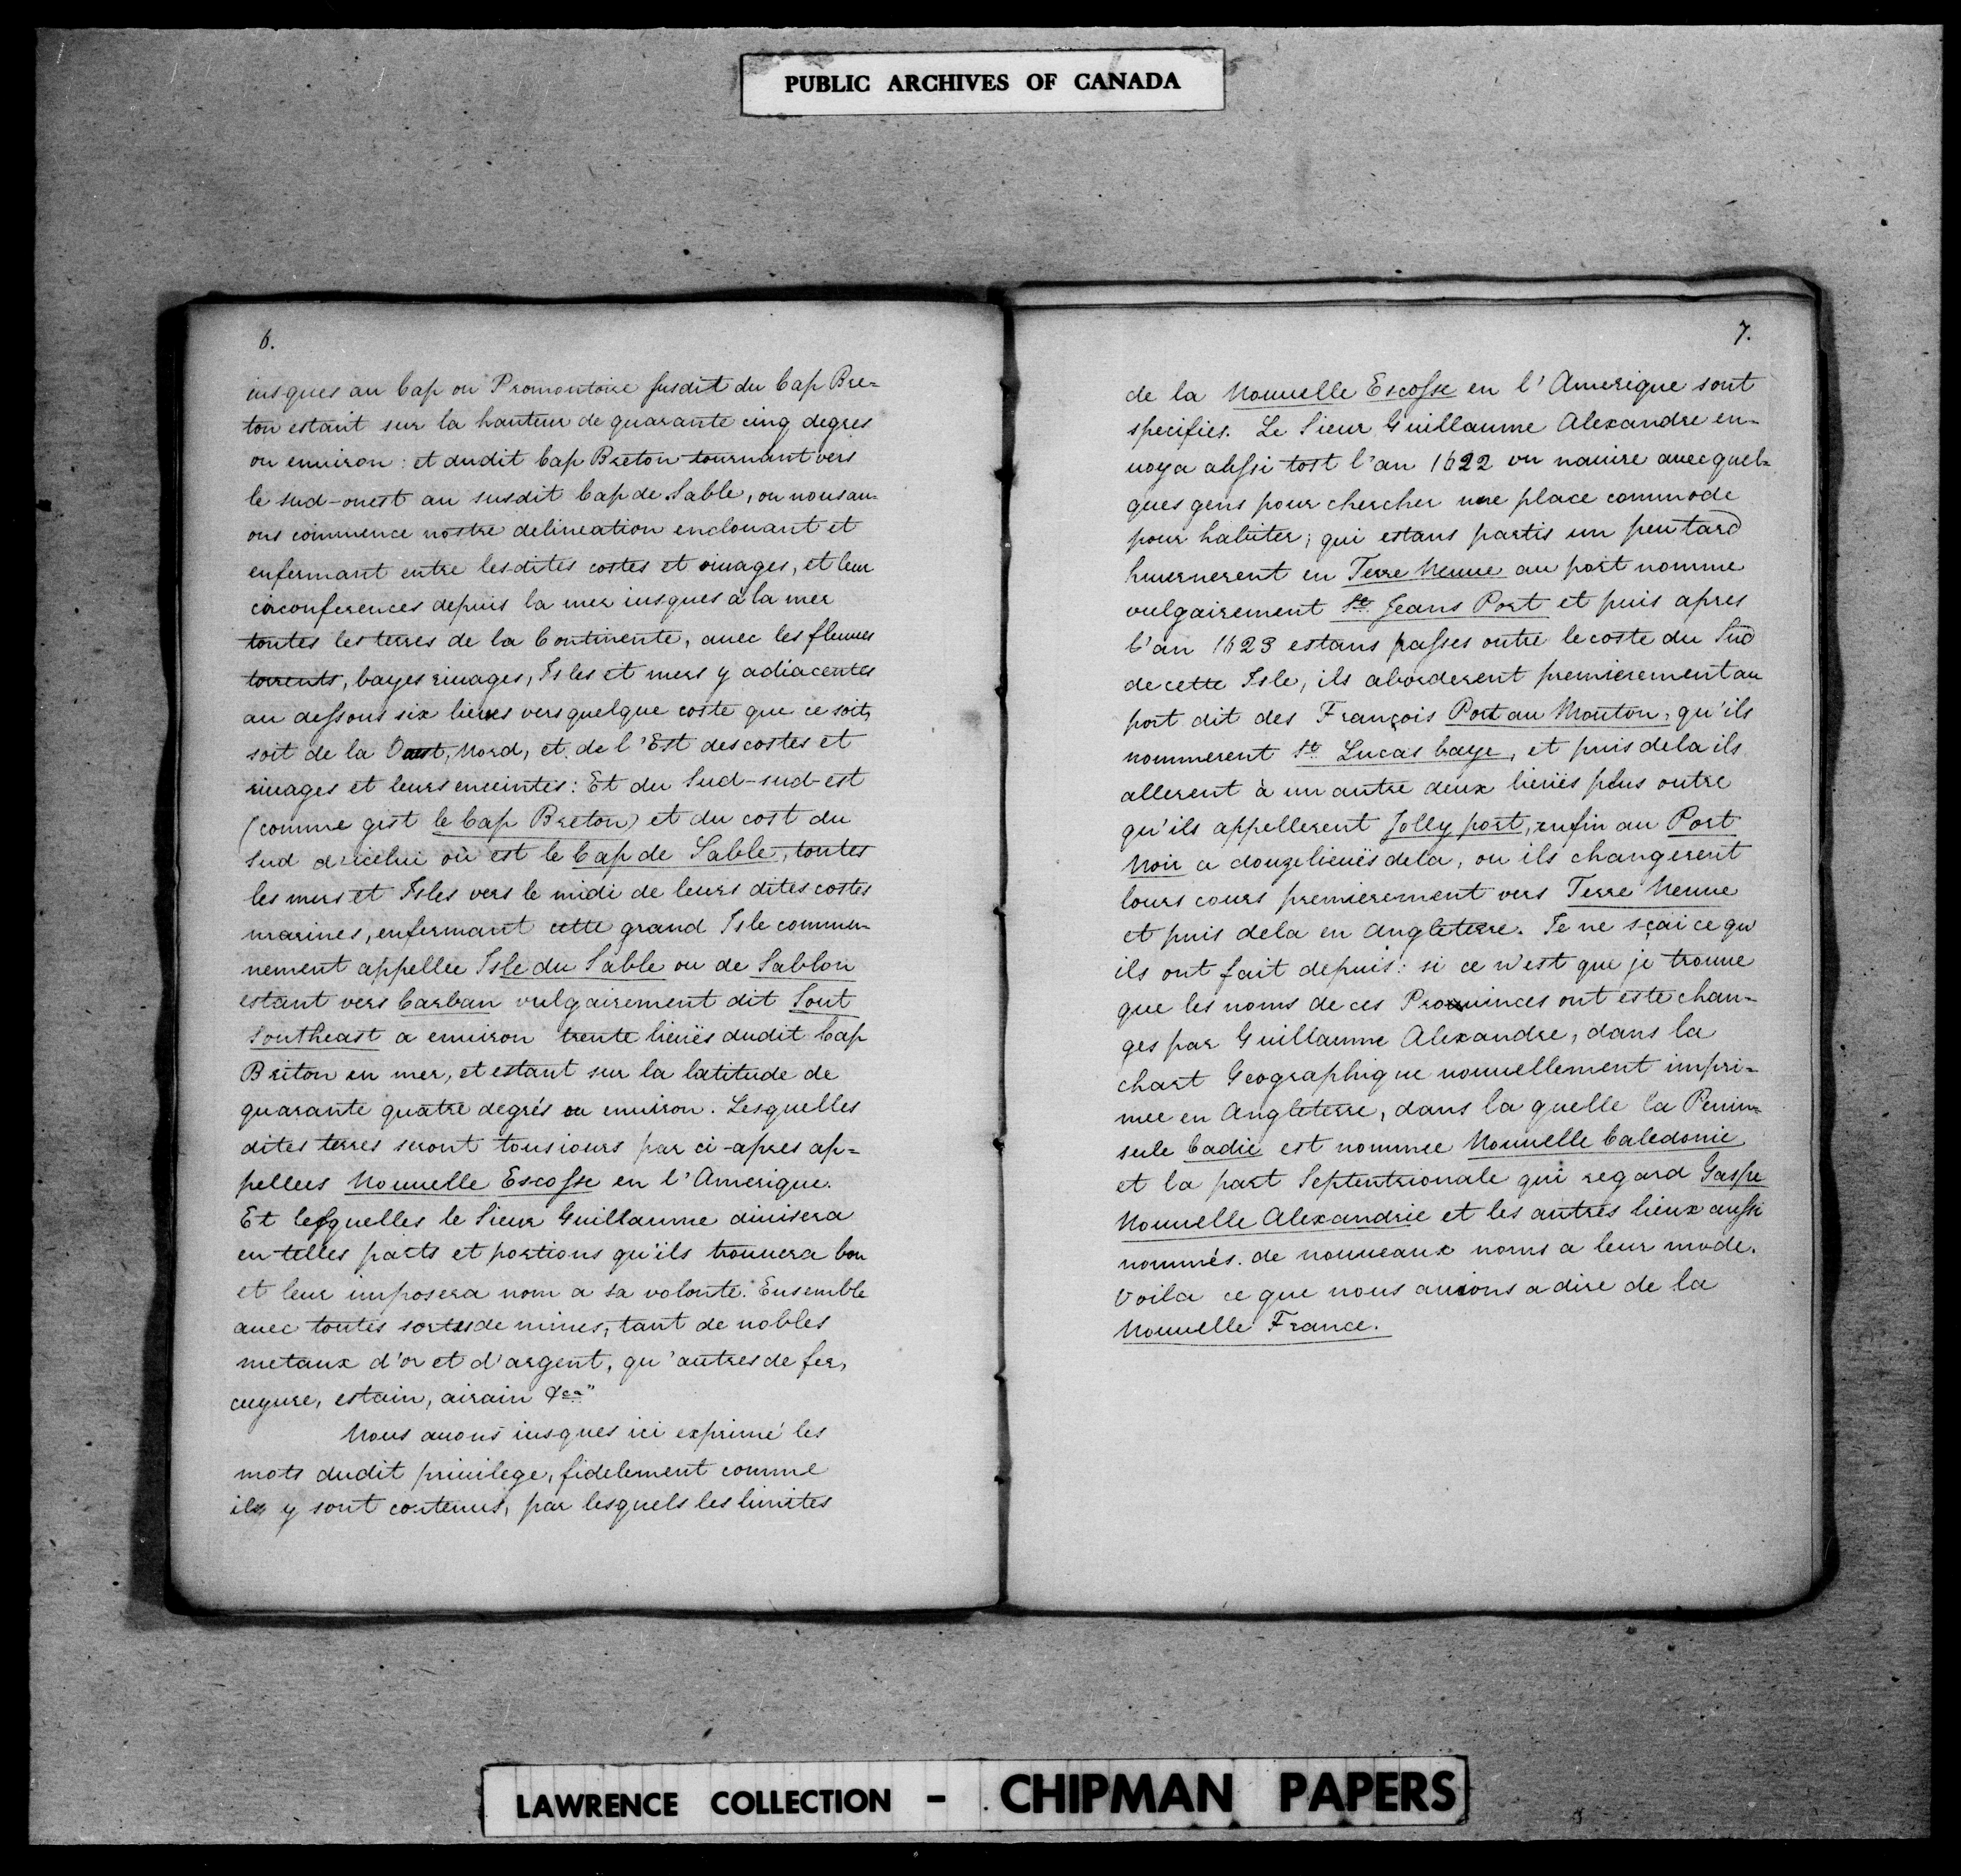 PUBLIC ARCHIVES OF CANADA
6.
iusques au Cap ou Promontoire susdit du Cap Bre=
ton estant sur la hauteur de quarante cinq degres
ou enuiron : et dudit Cap Breton tournant vers
le sud-ouest au susdit Cap de Sable, ou nous au-
ons commence nostre delineation enclouant et
enfermant entre lesdites costes et riuages, et leur
circonferences depuis la mer iusques à la mer
toutes les terres de la Continente, auec les fleuues
torrents, bayes riuages, Isles et mers y adiacentes
au dessous six lieues vers quelque coste que ce soit,
soit de la Ouest, Nord, et de l'Est des costes et
riuages et leurs enceintes : Et du Sud-sud-est
(comme gist le Cap Breton) et du cost du
Sud d'icelui où est le Cap de Sable, toutes
les mers et Isles vers le midi de leurs dites costes
marines, enfermant cette grand Isle commu-
nement appellee Isle du Sable ou de Sablon
estant vers Carban vulgairement dit Sout
Southeast a enuiron trente lieuës dudit Cap
Briton en mer, et estant sur la latitude de
quarante quatre degrés ou enuiron. Lesquelles
dites terres seront tousiours par ci-apres ap=
pellees Nouuelle Escosse en l'Amerique.
Et lesquelles le Sieur Guillaume diuisera
en telles parts et portions qu'ils trouuera bon
et leur imposera nom a sa volonte. Ensemble
auec toutes sortes de mines, tant de nobles
metaux d'or et d'argent, qu'autres de fer,
cuyure, estain, airain &ca"
Nous auons iusques ici exprimé les
mots dudit priuilege, fidelement comme
ils y sont contenus, par lesquels les limites
7.
de la Nouuelle Escosse en l'Amerique sont
specifies. Le Sieur Guillaume Alexandre en-
uoya assi tost l'an 1622 vn nauire auec quel-
ques gens pour chercher une place commode
pour habiter ; qui estans partis un peu tard
huernerent en Terre Neuue au port nomme
vulgairement St. Jeans Port et puis apres
l'an 1623 estans passes outre le coste du Sud
de cette Isle, ils aborderent premierement au
port dit des François Port au Mouton, qu'ils
nommerent St. Lucas baye, et puis dela ils
allerent à un autre deux lieuës plus outre
qu'ils appellerent Jolly port, enfin au Port
Noir a douze lieuës dela, ou ils changerent
lours cours premierement vers Terre Neuue
et puis dela en Angleterre. Je ne sçai ce qu'
ils ont fait depuis : si ce n'est que je trouue
que les noms de ces Prouinces ont este chan-
ges par Guillaume Alexandre, dans la
chart Geographique nouuellement impri=
mee en Angleterre, dans la quelle la Penin=
sule Cadie est nommee Nouuelle Caledonie
et la part Septentrionale qui regard Gaspe
Nouuelle Alexandrie et les autres lieux aussi
nommés de nouueaux noms a leur mode.
Voila ce que nous auions a dire de la
Nouuelle France.
LAWRENCE COLLECTION - CHIPMAN PAPERS